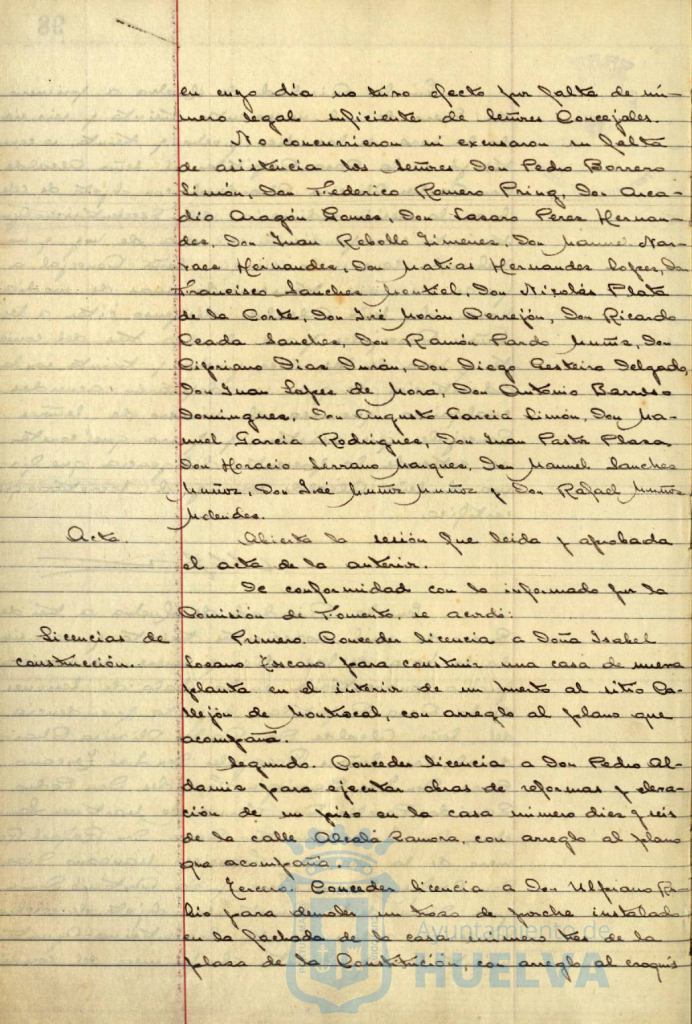 en cuyo día no tuvo efecto por falta de nú-
mero legal suficiente de Señores Concejales.
No concurrieron ni excusaron su falta
de asistencia los Señores Don Pedro Borrero
Limón, Don Federico Romero Pring, Don Arca-
dio Aragón Gomes, Don Lasaro Peres Hernan-
des, Don Juan Rebollo Jimenes, Don Manuel Nar-
vaes Hernandes, Don Matias Hernandes Lopes, Don
Francisco Sanches Montiel, Don Nicolás Plata
de la Corte, Don José Morón Perrejón, Don Ricardo
Ceada Sanches, Don Ramón Pardo Muñiz, Don
Cipriano Dias Durán, Don Diego Gesteiro Delgado,
Don Juan Lopes de Mora, Don Antonio Barroso
Domingues, Don Augusto Garcia Limón, Don Ma-
nuel Garcia Rodrigues, Don Juan Pastor Plasa
Don Horacio Serrano Marques, Don Manuel Sanches
Muñoz, Don José Muñoz Muñoz y Don Rafael Muñoz
Melendes.
Acta. Abierta la sesión fue leida y aprobada
el acta de la anterior.
De conformidad con lo informado por la
Comisión de Fomento, se acordó:
Licencias de Primero. Conceder licencia a Doña Isabel
construcción. Loscano Toscano para construir una casa de nueva
planta en el interior de un huerto al sitio Ca-
llejón de Montrocal, con arreglo al plano que
acompaña.
Segundo. Conceder licencia a Don Pedro Al-
damis para ejecutar obras de reformas y eleva-
ción de un piso en la casa número dies y seis
de la calle Alcalá Zamora, con arreglo al plano
que acompaña.
Tercero. Conceder licencia a Don Ulpiano Ru-
bio para demoler un troso de porche instalado
en la fachada de la casa número tres de la
plasa de la Constitución, con arreglo al croquis
Ayuntamiento de
HUELVA